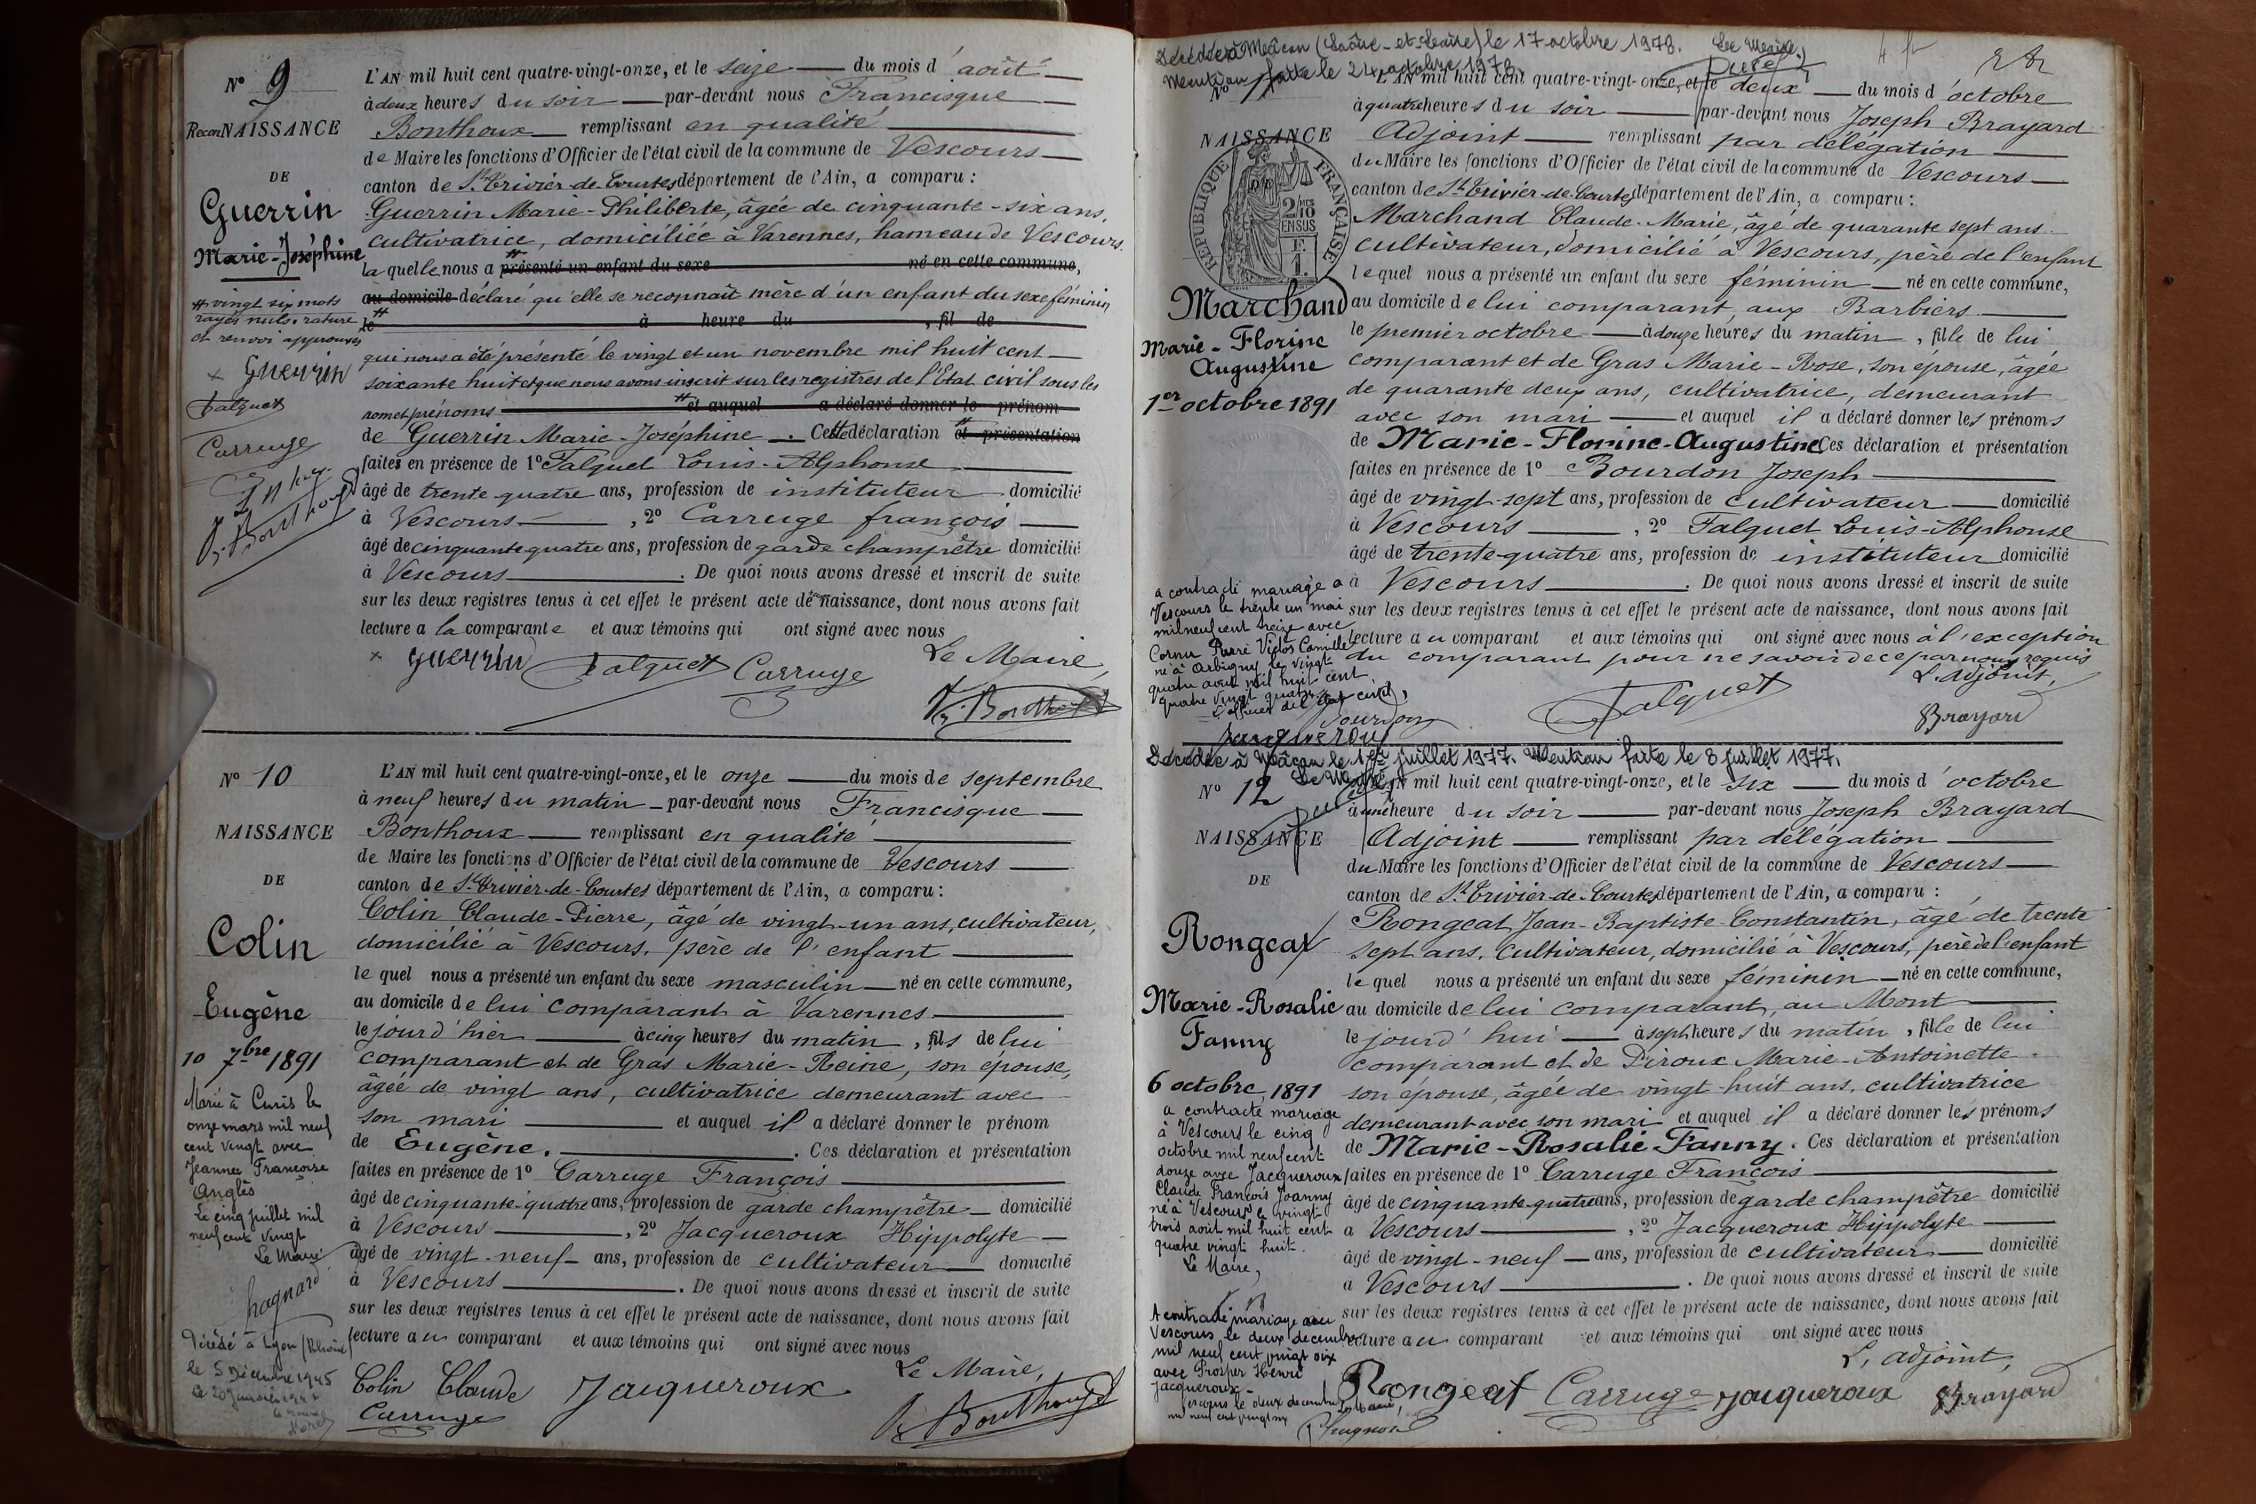 N° 9
ReconNAISSANCE
DE
Guerrin
Marie-Joséphine
vingt six mots
rayés nuls. rature
et renvoi approuvés
Guerrin
Falquet
Carruge
L'AN mil huit cent quatre-vingt-onze, et le seize du mois d'août
à deux heures du soir par-devant nous Francisque
Bonthoux remplissant en qualité
de Maire les fonctions d'Officier de l'état civil de la commune de Vescours
canton de St Trivier-de-Courtes département de l'Ain, a comparu :
Guerrin Marie-Philiberte, âgée de cinquante-six ans,
cultivatrice, domiciliée à Varennes, hameau de Vescours.
laquelle nous a présenté un enfant du sexe né en cette commune,
au domicile déclaré qu'elle se reconnaît mère d'un enfant du sexe féminin
le à heure du , fil de
qui nous a été présenté le vingt et un novembre mil huit cent
soixante huit et que nous avons inscrit sur les registres de l'Etat civil sous les
nom et prénoms et auquel a déclaré donner le prénom
de Guerrin Marie-Joséphine. Cette déclaration et présentation
faites en présence de 1° Falquet Louis-Alphonse
âgé de trente quatre ans, profession de instituteur domicilié
à Vescours , 2° Carruge françois
âgé de cinquante quatre ans, profession de garde champêtre domicilié
à Vescours . De quoi nous avons dressé et inscrit de suite
sur les deux registres tenus à cet effet le présent acte de naissance, dont nous avons fait
lecture a la comparante et aux témoins qui ont signé avec nous
Le Maire,
Guerrin Falquet Carruge
Fs. Bonthoux
N° 10
NAISSANCE
DE
Colin
Eugène
10 7bre 1891
Marié à Curis le
onze mars mil neuf
cent vingt avec
Jeanne Françoise
Anglès
Le cinq juillet mil
neuf cent vingt
Le Maire
Décédé à Lyon (Rhône)
le 5 Décembre 1945
L'AN mil huit cent quatre-vingt-onze, et le onze du mois de septembre
à neuf heures du matin par-devant nous Francisque
Bonthoux remplissant en qualité
de Maire les fonctions d'Officier de l'état civil de la commune de Vescours
canton de St Trivier-de-Courtes département de l'Ain, a comparu :
Colin Claude-Pierre, âgé de vingt-un ans, cultivateur,
domicilié à Vescours, père de l'enfant
lequel nous a présenté un enfant du sexe masculin né en cette commune,
au domicile de lui comparant à Varennes
le jourd'hier à cinq heures du matin, fils de lui
comparant et de Gras Marie-Reine, son épouse,
âgée de vingt ans, cultivatrice demeurant avec
son mari et auquel il a déclaré donner le prénom
de Eugène. . Ces déclaration et présentation
faites en présence de 1° Carruge François
âgé de cinquante-quatre ans, profession de garde champêtre domicilié
à Vescours , 2° Jacqueroux Hippolyte
âgé de vingt-neuf ans, profession de cultivateur domicilié
à Vescours . De quoi nous avons dressé et inscrit de suite
sur les deux registres tenus à cet effet le présent acte de naissance, dont nous avons fait
lecture au comparant et aux témoins qui ont signé avec nous
Le Maire,
Colin Claude Jacqueroux
Carruge
Fs. Bonthoux
Décédée à Mâcon (Saône-et-Loire) le 17 octobre 1978. Le Maire,
Mention faite le 24 octobre 1978.
N°
NAISSANCE
DE
REPUBLIQUE FRANÇAISE
2/10 EN SUS
Marchand
Marie-Florine
Augustine
1er octobre 1891
a contracté mariage à
Vescours le trente un mai
mil neuf cent treize avec
Cornu Pierre Victor Camille
né à Arbigny le vingt
quatre août mil huit cent
quatre vingt quatre
L'officier de l'état civil,
L'AN mil huit cent quatre-vingt-onze, et le deux du mois d'octobre
à quatre heures du soir par-devant nous Joseph Brayard
Adjoint remplissant par délégation
du Maire les fonctions d'Officier de l'état civil de la commune de Vescours
canton de St Trivier-de-Courtes département de l'Ain, a comparu :
Marchand Claude-Marie, âgé de quarante sept ans
cultivateur, domicilié à Vescours, père de l'enfant
lequel nous a présenté un enfant du sexe féminin né en cette commune,
au domicile de lui comparant, aux Barbiers
le premier octobre à douze heures du matin, fille de lui
comparant et de Gras Marie-Rose, son épouse, âgée
de quarante deux ans, cultivatrice, demeurant
avec son mari et auquel il a déclaré donner les prénoms
de Marie-Florine-Augustine Ces déclaration et présentation
faites en présence de 1° Bourdon Joseph
âgé de vingt-sept ans, profession de cultivateur domicilié
à Vescours , 2° Falquet Louis-Alphonse
âgé de trente-quatre ans, profession de instituteur domicilié
à Vescours . De quoi nous avons dressé et inscrit de suite
sur les deux registres tenus à cet effet le présent acte de naissance, dont nous avons fait
lecture au comparant et aux témoins qui ont signé avec nous à l'exception
du comparant pour ne savoir de ce par nous requis
L. adjoint,
Bourdon Falquet Brayard
Décédée à Mâcon le 1er juillet 1977. Mention faite le 8 juillet 1977.
Le Maire
N° 12
NAISSANCE
DE
Rongeat
Marie-Rosalie
Fanny
6 octobre, 1891
a contracté mariage
à Vescours le cinq
octobre mil neuf cent
douze avec Jacqueroux
Claude François Joanny
né à Vescours le vingt
trois août mil huit cent
quatre vingt huit.
Le Maire,
A contracté mariage à
Vescours le deux décembre
mil neuf cent vingt six
avec Prosper Henri
Jacqueroux
Vescours le deux décembre
mil neuf cent vingt six
L'AN mil huit cent quatre-vingt-onze, et le six du mois d'octobre
à une heure du soir par-devant nous Joseph Brayard
Adjoint remplissant par délégation
du Maire les fonctions d'Officier de l'état civil de la commune de Vescours
canton de St Trivier-de-Courtes département de l'Ain, a comparu :
Rongeat Jean-Baptiste-Constantin, âgé de trente
sept ans, cultivateur, domicilié à Vescours, père de l'enfant
lequel nous a présenté un enfant du sexe féminin né en cette commune,
au domicile de lui comparant, au Mont
le jourd'hui à sept heures du matin, fille de lui
comparant et de Piroux Marie-Antoinette
son épouse, âgée de vingt-huit ans, cultivatrice
demeurant avec son mari et auquel il a déclaré donner les prénoms
de Marie-Rosalie-Fanny. Ces déclaration et présentation
faites en présence de 1° Carruge François
âgé de cinquante-quatre ans, profession de garde champêtre domicilié
à Vescours , 2° Jacqueroux Hippolyte
âgé de vingt-neuf ans, profession de cultivateur domicilié
à Vescours . De quoi nous avons dressé et inscrit de suite
sur les deux registres tenus à cet effet le présent acte de naissance, dont nous avons fait
lecture au comparant et aux témoins qui ont signé avec nous
L. adjoint,
Rongeat Carruge Jacqueroux Brayard